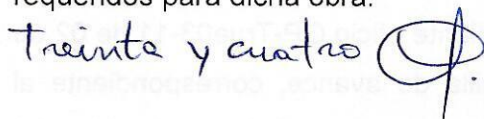 requeridos para dicha obra.
Treinta y cuatro